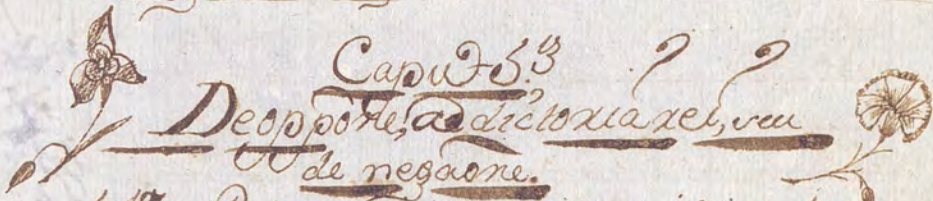 Caput 5.us
De oppone, adictoria rei, seu
de negaone.